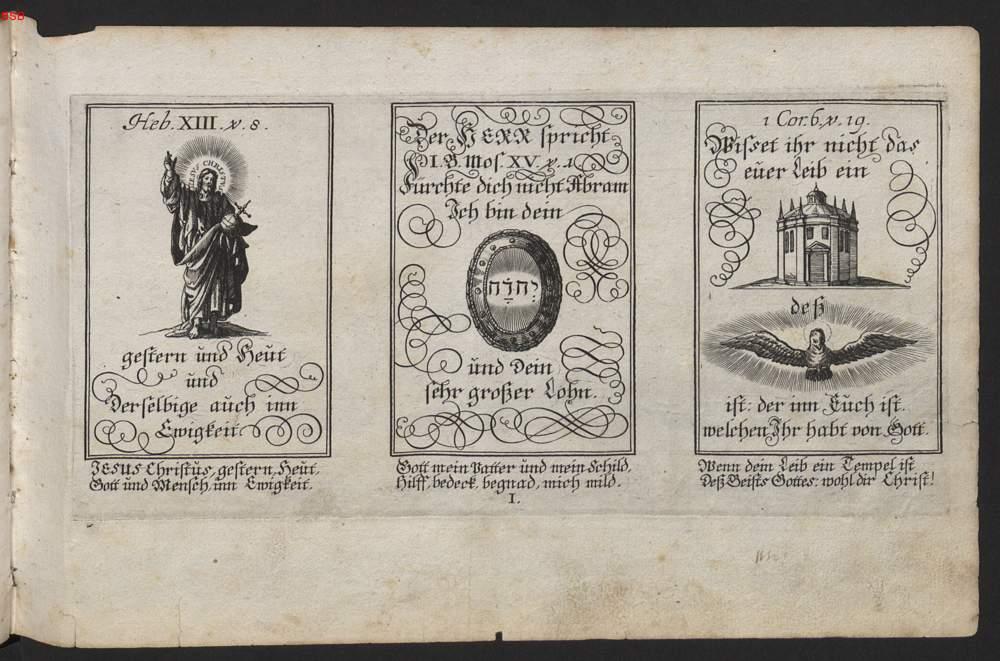 BSB
Heb. XIII. v. 8.
JESUS CHRISTUS
gestern und Heut
und
Derselbige auch inn
Ewigkeit
JESUS Christus, gestern, Heut,
Gott und Mensch, inn Ewigkeit.
Der HERR spricht
I. B. Mos. XV. v. 1.
Fürchte dich nicht Abram
Ich bin dein
יהוה
und Dein
sehr großer Lohn.
Gott mein Vatter und mein Schild,
Hilff, bedeck, begnad, mich mild.
I.
1 Cor. 6, v. 19.
Wisset ihr nicht das
euer Leib ein
deß
ist: der inn Euch ist.
welchen Ihr habt von Gott.
Wenn dein Leib ein Tempel ist
Deß Geists Gottes: wohl dir Christ!